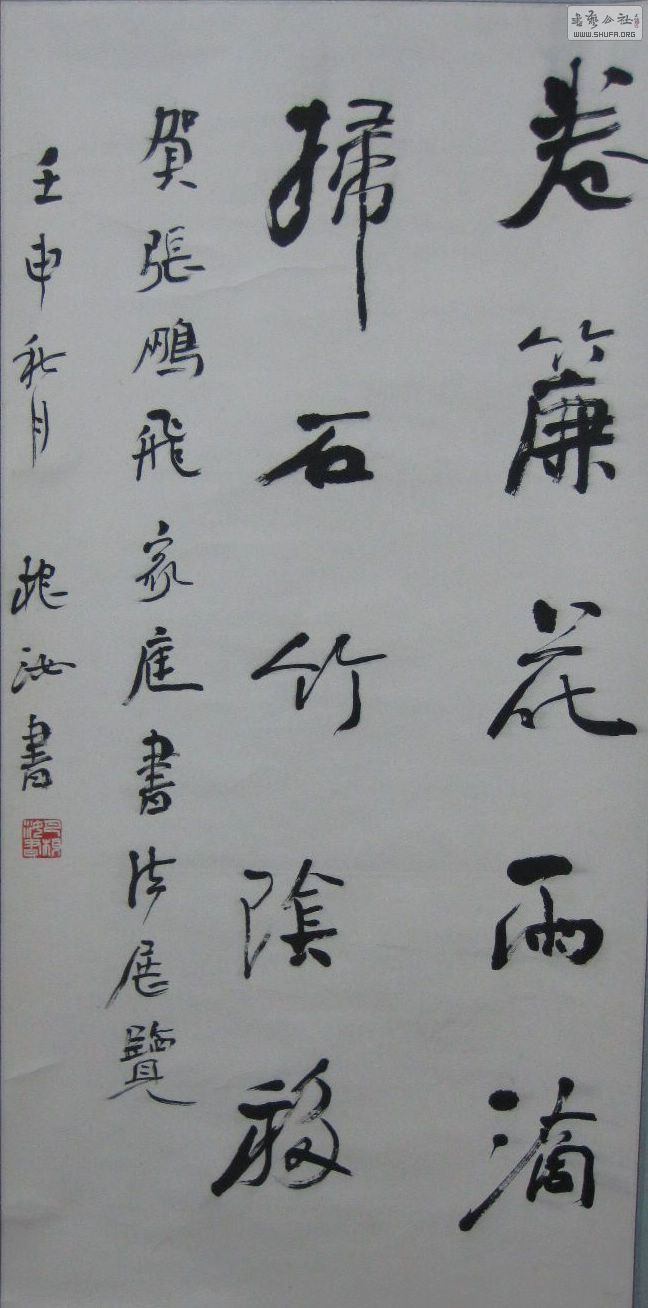 卷簾花雨滴
掃石竹陰移
賀張鵬飛家庭書法展覽
壬申秋月 桃汝書
書藝公社
WWW.SHUFA.ORG